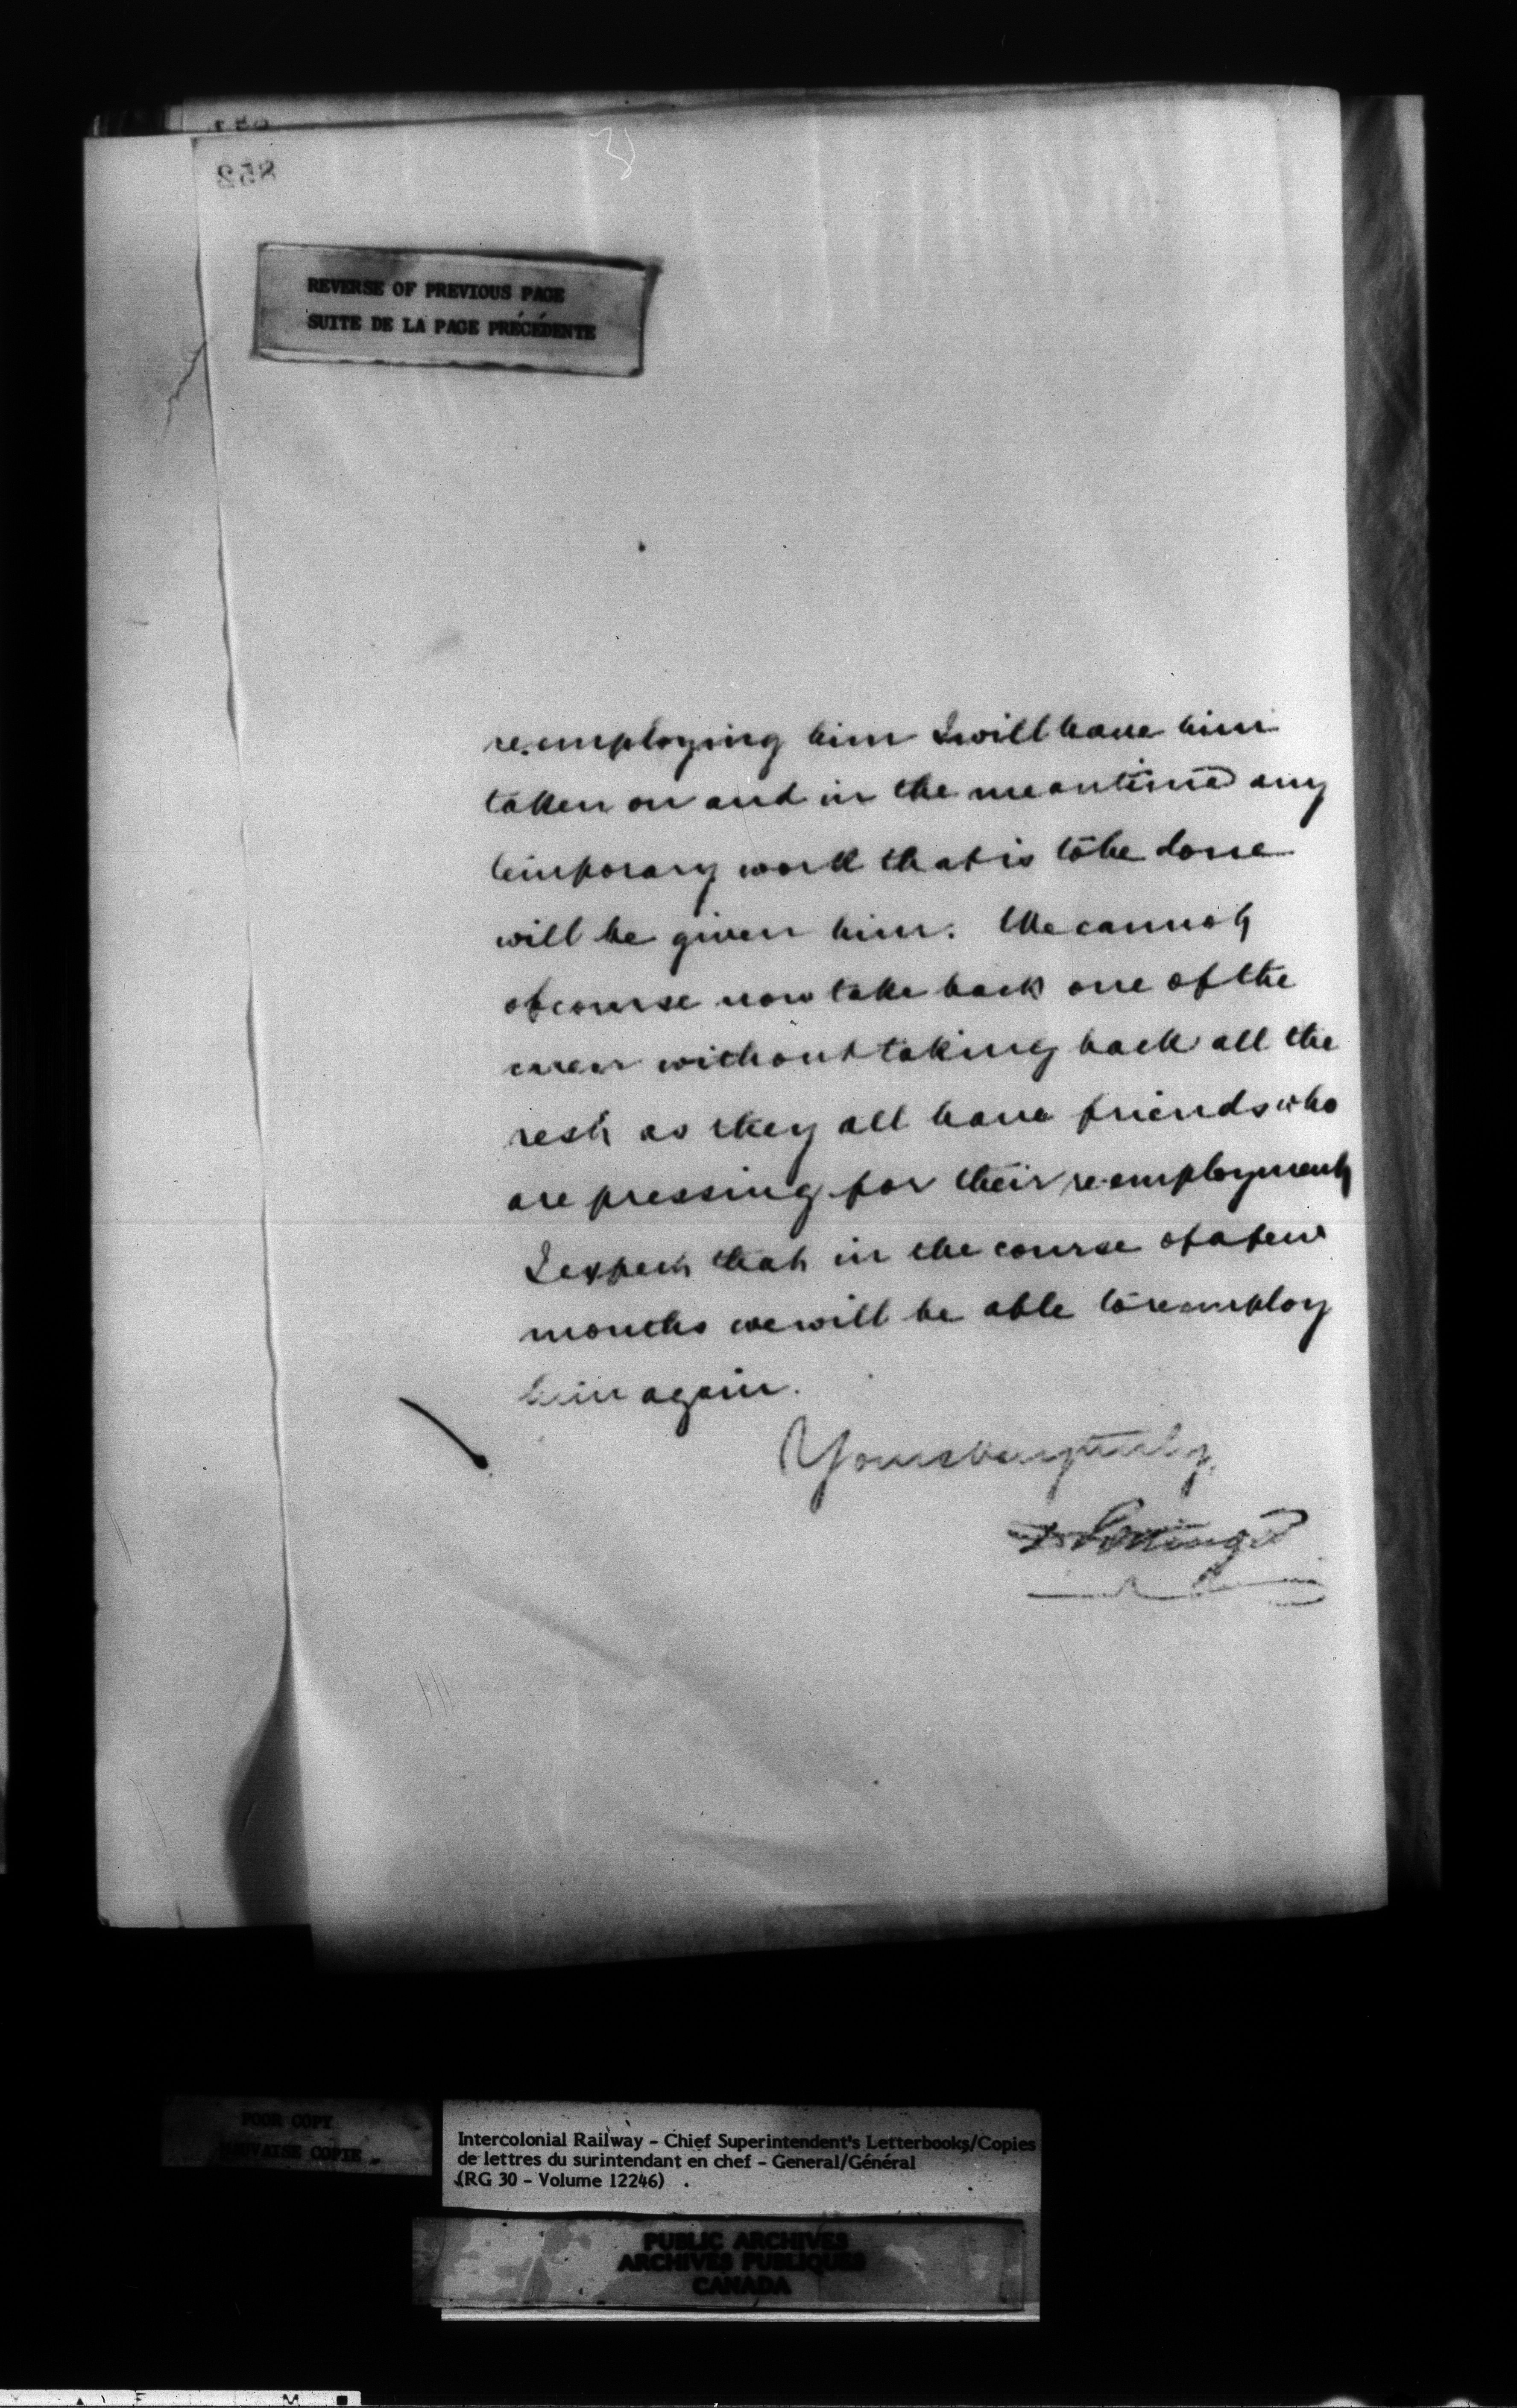 852
REVERSE OF PREVIOUS PAGE
SUITE DE LA PAGE PRÉCÉDENTE
re-employing him I will have him
taken on and in the meantime any
temporary work that is to be done
will be given him. We cannot
of course now take back one of the
men without taking back all the
rest as they all have friends who
are pressing for their re-employment
I expect that in the course of a few
months we will be able to reemploy
him again.
Yours very truly,
D Pottinger
POOR COPY
MAUVAISE COPIE
Intercolonial Railway - Chief Superintendent's Letterbooks/Copies
de lettres du surintendant en chef - General/Général
(RG 30 - Volume 12246)
PUBLIC ARCHIVES
ARCHIVES PUBLIQUES
CANADA